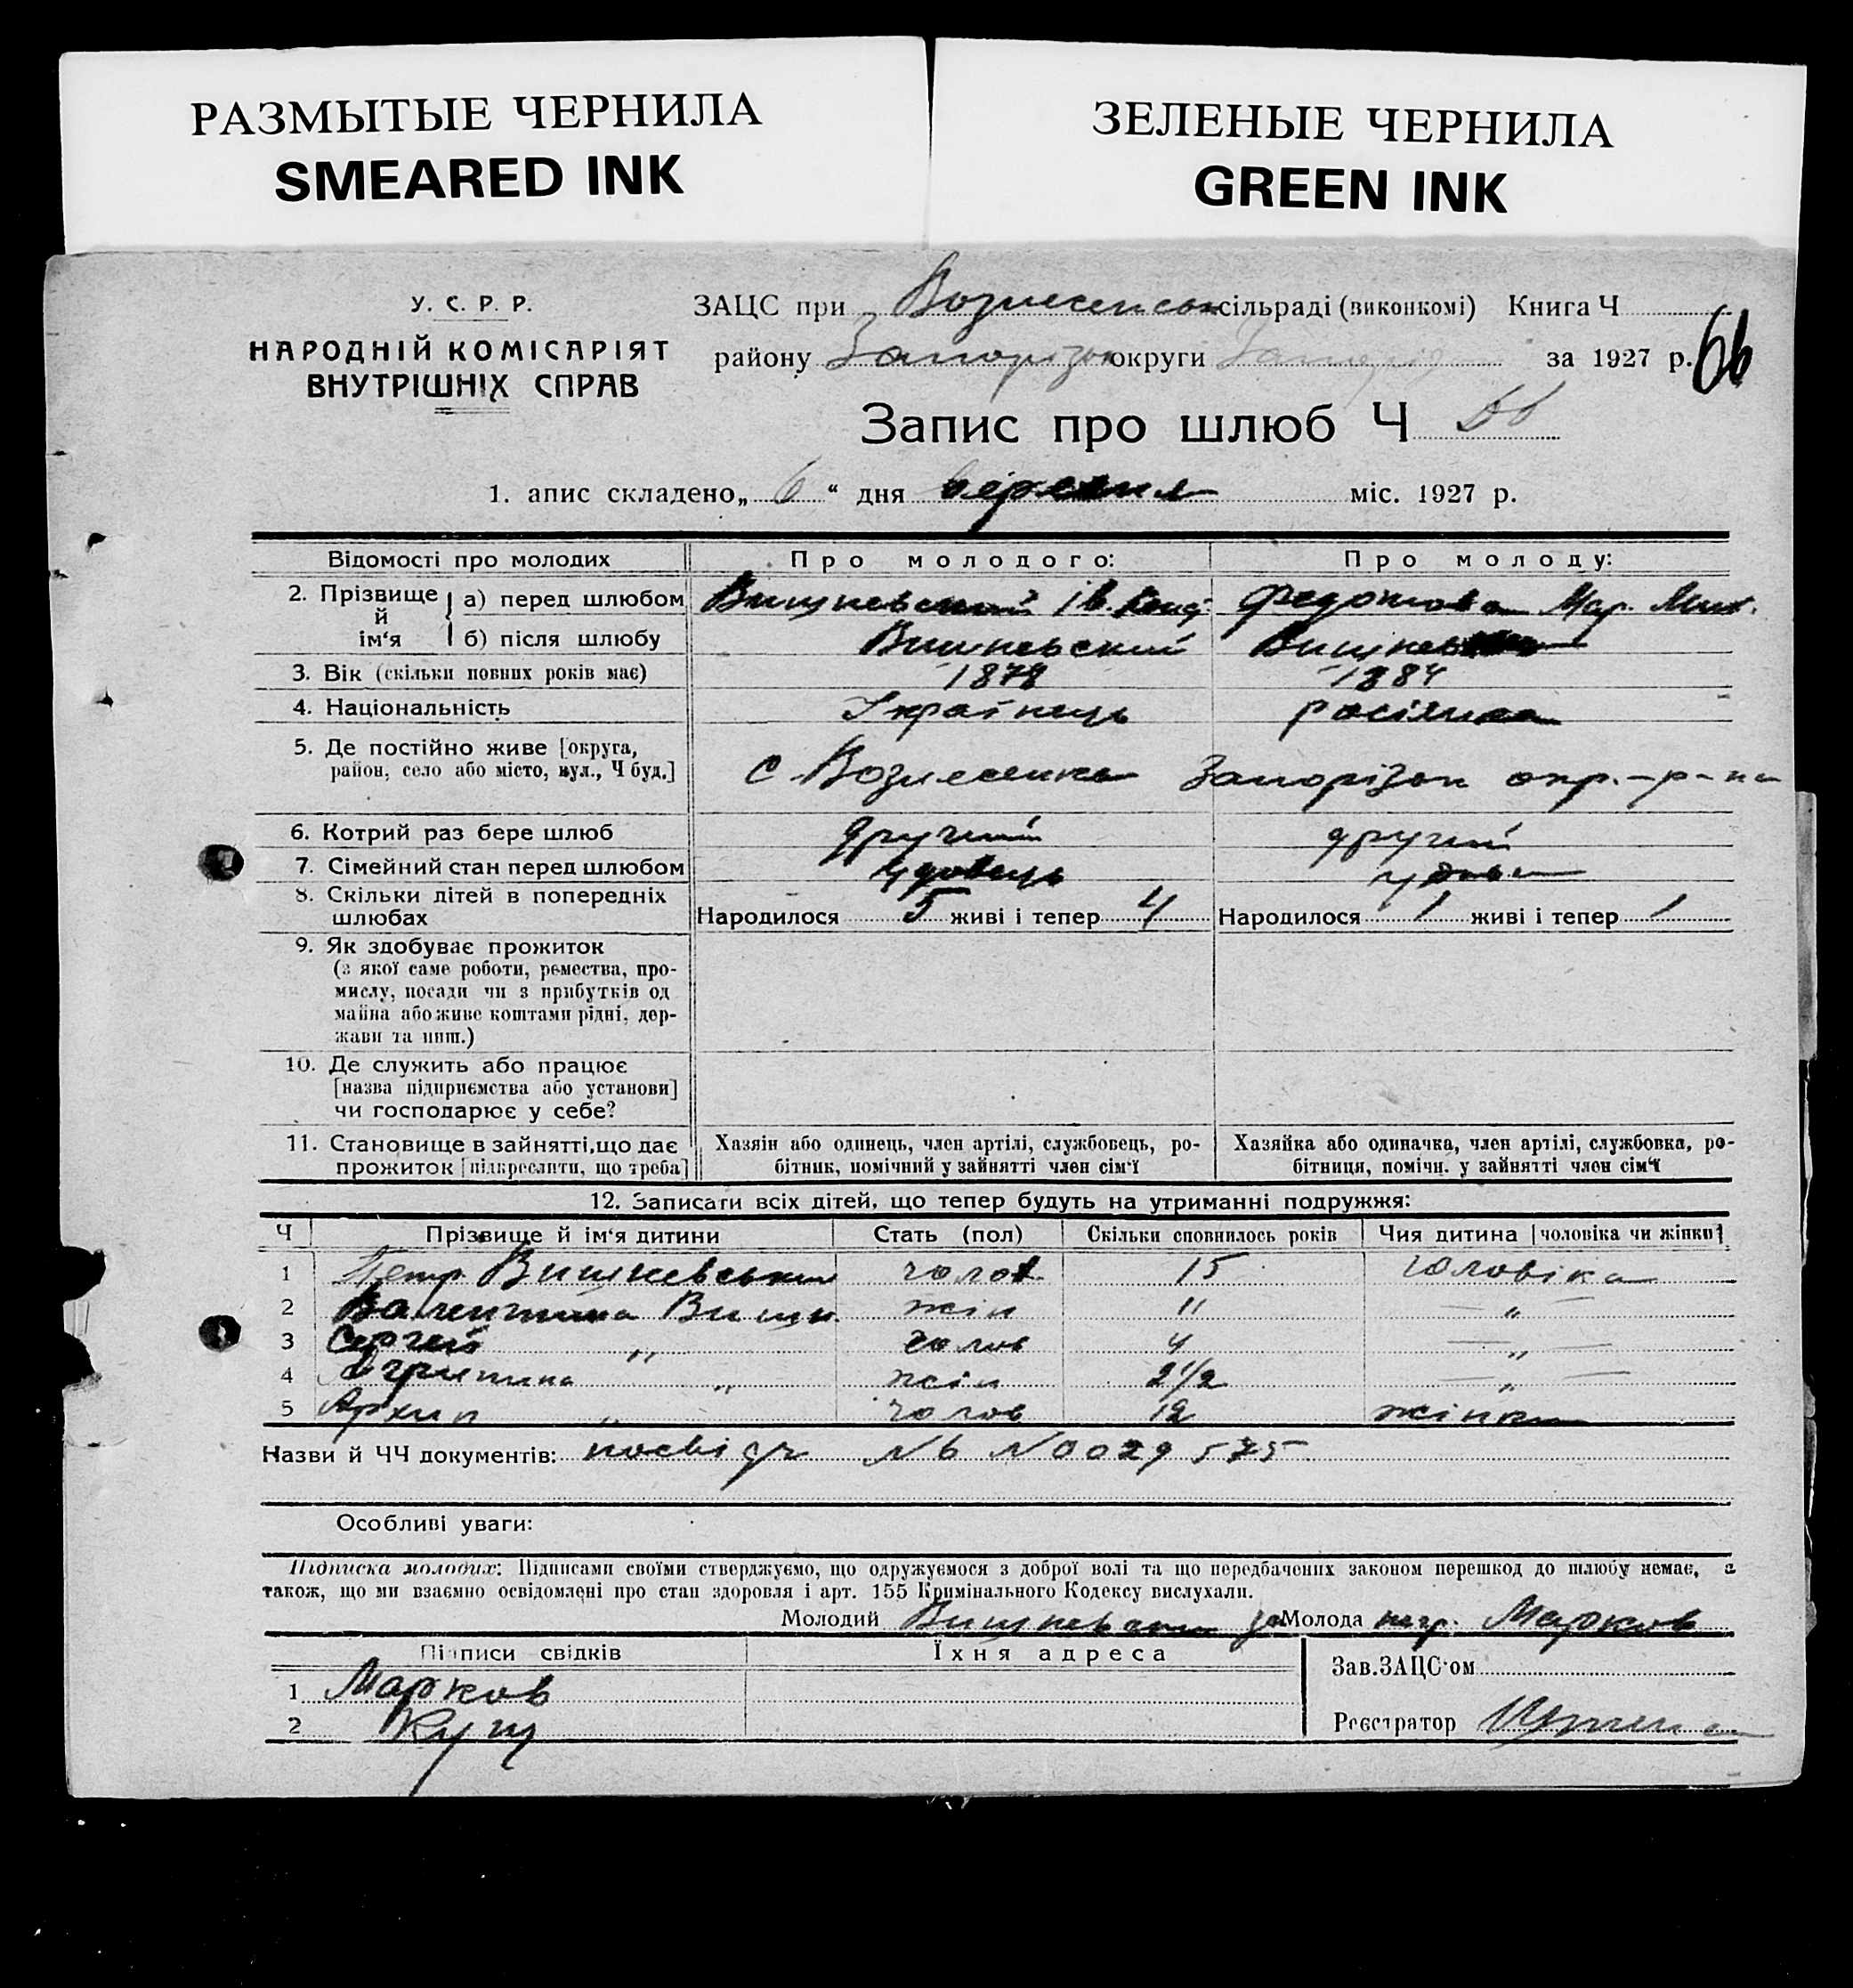 РАЗМЫТЫЕ ЧЕРНИЛА
SMEARED INK
ЗЕЛЕНЫЕ ЧЕРНИЛА
GREEN INK
У. С. Р. Р.
НАРОДНІЙ КОМІСАРІЯТ
ВНУТРІШНІХ СПРАВ
ЗАЦС при Вознесенськ сільраді (виконкомі) Книга Ч
району Запорізьк округи за 1927 р. 66
Запис про шлюб Ч 66
1. апис складено „ 6 “ дня вересня міс. 1927 р.
Відомості про молодих Про молодого: Про молоду:
2. Прізвище й ім‘я
а) перед шлюбом Вишневский Ів. Федотова Мар. Мих.
б) після шлюбу Вишневский
3. Вік (скільки повних років має) 1878 1884
4. Національність Українець росіянка
5. Де постійно живе [округа,
район, село або місто, вул., Ч буд.] с. Вознесенка Запорізьк окр. - р-на
6. Котрий раз бере шлюб другий другий
7. Сімейний стан перед шлюбом удовець удова
8. Скільки дітей в попередніх
шлюбах Народилося 5 живі і тепер 4 Народилося 1 живі і тепер 1
9. Як здобуває прожиток
(з якої саме роботи, ремества, про-
мислу, посади чи з прибутків од
майна або живе коштами рідні, дер-
жави та инш.)
10. Де служить або працює
[назва підприємства або установи]
чи господарює у себе?
11. Становище в зайнятті, що дає
прожиток [підкреслити, що треба]
Хазяїн або одинець, член артілі, службовець, ро-
бітник, помічний у зайнятті член сім‘ї
Хазяйка або одиначка, член артілі, службовка, ро-
бітниця, помічн. у зайнятті член сім‘ї
12. Записати всіх дітей, що тепер будуть на утриманні подружжя:
Ч Прізвище й ім‘я дитини Стать (пол) Скільки сповнилось років Чия дитина [чоловіка чи жінки]
1 Петр Вишневський чолов 15 чоловіка
2 Валентина Вишн. жін 11 — „ —
3 Сергей „ чолов 4 — „ —
4 „ жін 2 1/2 — „ —
5 Архип „ чолов 12 жінки
Назви й ЧЧ документів: посвідч № 6 № 0029575
Особливі уваги:
Підписка молодих: Підписами своїми стверджуємо, що одружуємося з доброї волі та що передбачених законом перешкод до шлюбу немає, а
також, що ми взаємно освідомлені про стан здоровля і арт. 155 Кримінального Кодексу вислухали.
Молодий Вишневский за Молода негр. Марков
Підписи свідків Їхня адреса
1 Марков
2 Кущ
Зав. ЗАЦС‘ом
Реєстратор